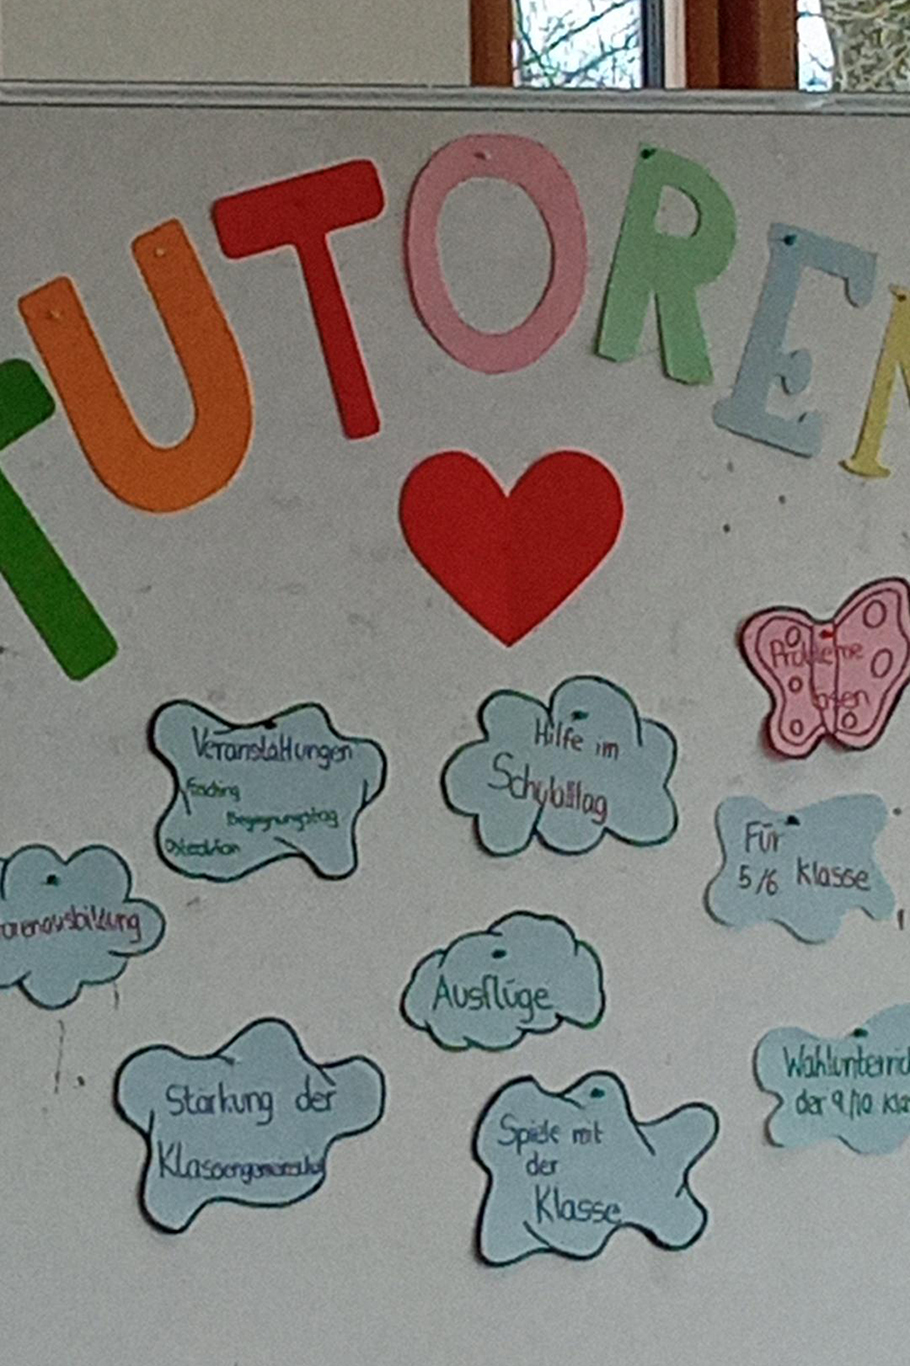 TUTOREN
Probleme
lösen
Veranstaltungen
Fasching
Begegnungstag
Osteraktion
Hilfe im
Schulalltag
Für
5/6 Klasse
orenausbildung
Ausflüge
Stärkung der
Klassengemeinschaft
Spiele mit
der
Klasse
Wahlunterric
der 9/10 Kla